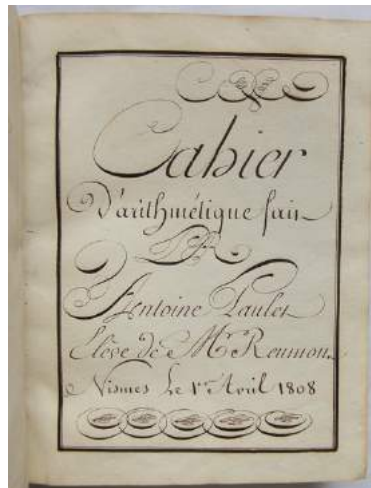 Cahier
D'arithmétique fait
PAR
Antoine Paulet
Elève de Mr Reumon
Nismes Le 1er Avril 1808